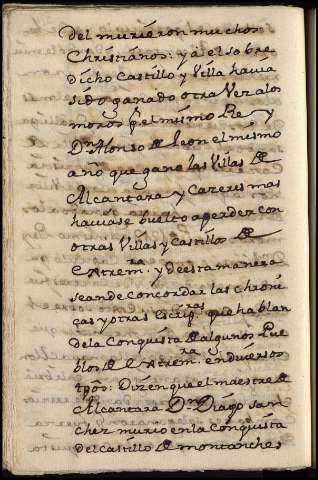 del murieron muchos
Christianos: ya el sobre
dicho Castillo y Villa havia
sido ganado otra Vez alos
moros pr el mismo Re y
Dn Alonso de leon el mismo
año que gano las Villas de
Alcantara y Cazeres mas
haviase buelto a perder con
otras Villas y Castillo de
Extremra. y de esta manera
se an de concordar las chroni
cas y otras Escripras que hablan
dela Conquista de algunos Pue
blos de Extremra. en diversos
tpos: Dizen que el maestre de
Alcantara Dn Diago san
chez murio en la Conquista
del Castillo de montanches